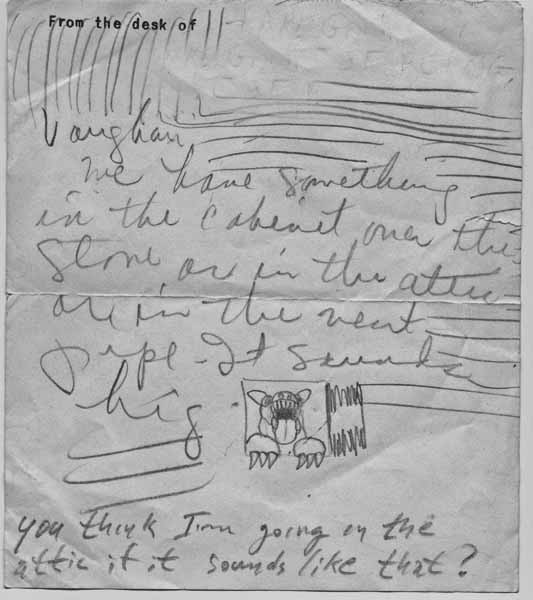 From the desk of
Vaughan
We have something
in the cabinet over the
stove or in the attic
or in the vent
pipe - It sounds
big
you think I'm going in the
attic if it sounds like that?